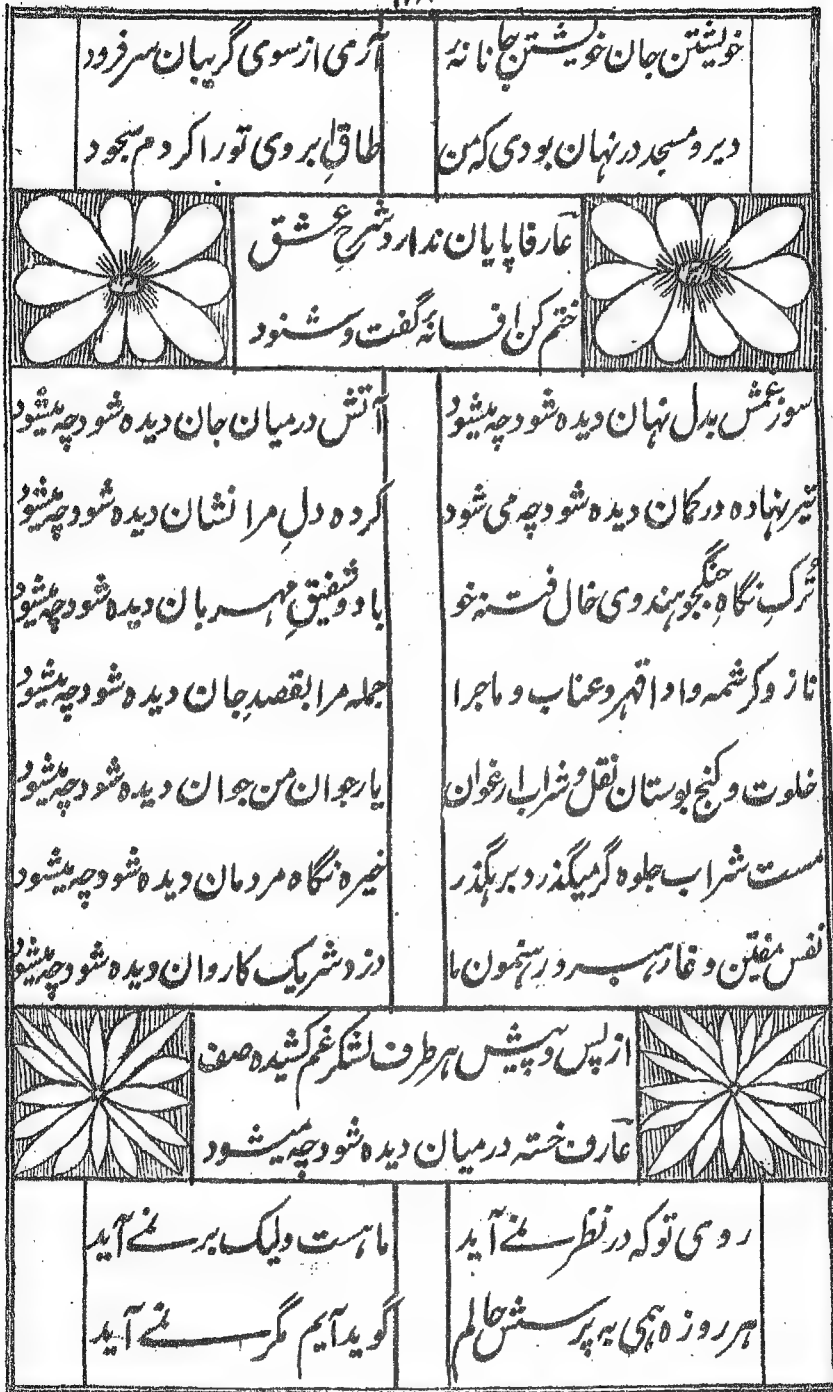 خویشتن جان خویشتن جانانهٔ
آرمی از سوی گریبان سر فرود
دیر و مسجد در نهان بودی که من
طاقِ ابروی تو را کردم سجود
عارفا پایان ندارد شرحِ عشق
ختم کن افسانهٔ گفت و شنود
سوزِ غمش بدل نهان دیده شود چه میشود
آتش در میان جان دیده شود چه میشود
تیر نهاده در کمان دیده شود چه می شود
کرده دلِ مرا نشان دیده شود چه میشود
تُرکِ نگاهِ جنگجو هندوی خال فتنه خو
با دو شفیقِ مهربان دیده شود چه میشود
ناز و کرشمه و ادا قهر و عتاب و ماجرا
جمله مرا بقصدِ جان دیده شود چه میشود
خلوت و کنج بوستان نقل و شراب ارغوان
یار جوان من جوان دیده شود چه میشود
مست شراب جلوه گر میگذرد بر هگذر
خیره نگاه مردمان دیده شود چه میشود
نفس مفتن و غا رهبر و رهنمون ما
دزد شریک کاروان دیده شود چه میشود
از پس و پیش هر طرف لشکر غم کشیده صف
عارف خسته در میان دیده شود چه میشود
روی تو که در نظر نمے آید
ماهست ولیک بر نمے آید
هر روزه همی به پرسش حالم
گوید آیم مگر نمے آید